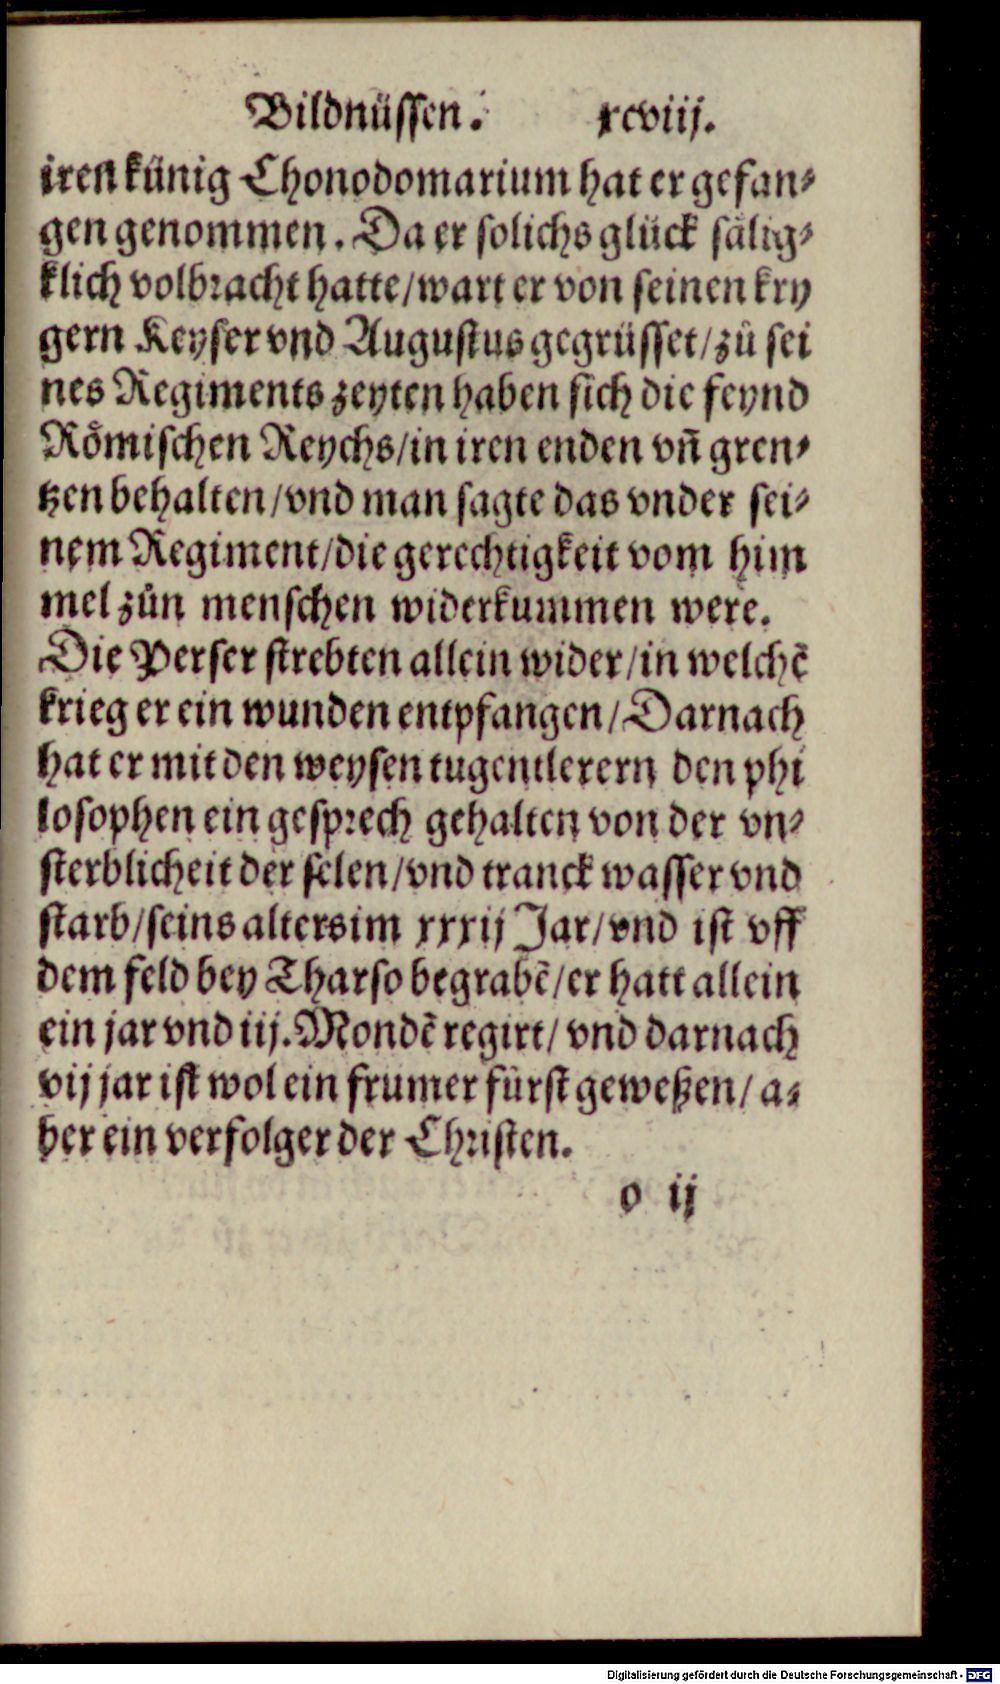 Bildnüssen. xcviij.
iren künig Chonodomarium hat er gefan⸗
gen genommen. Da er solichs glück sälig⸗
klich volbracht hatte/wart er von seinen kry
gern Keyser vnd Augustus gegrüsset/zů sei
nes Regiments zeyten haben sich die feynd
Römischen Reychs/in iren enden vñ gren⸗
tzen behalten/vnd man sagte das vnder sei⸗
nem Regiment/die gerechtigkeit vom him
mel zůn menschen widerkummen were.
Die Perser strebten allein wider/in welchẽ
krieg er ein wunden entpfangen/Darnach
hat er mit den weysen tugentlerern den phi
losophen ein gesprech gehalten von der vn⸗
sterblicheit der selen/vnd tranck wasser vnd
starb/seins alters im xxxij Jar/vnd ist vff
dem feld bey Tharso begrabẽ/er hatt allein
ein jar vnd iij. Mondẽ regirt/ vnd darnach
vij jar ist wol ein frumer fürst geweßen/ a⸗
ber ein verfolger der Christen.
o ij
Digitalisierung gefördert durch die Deutsche Forschungsgemeinschaft - DFG